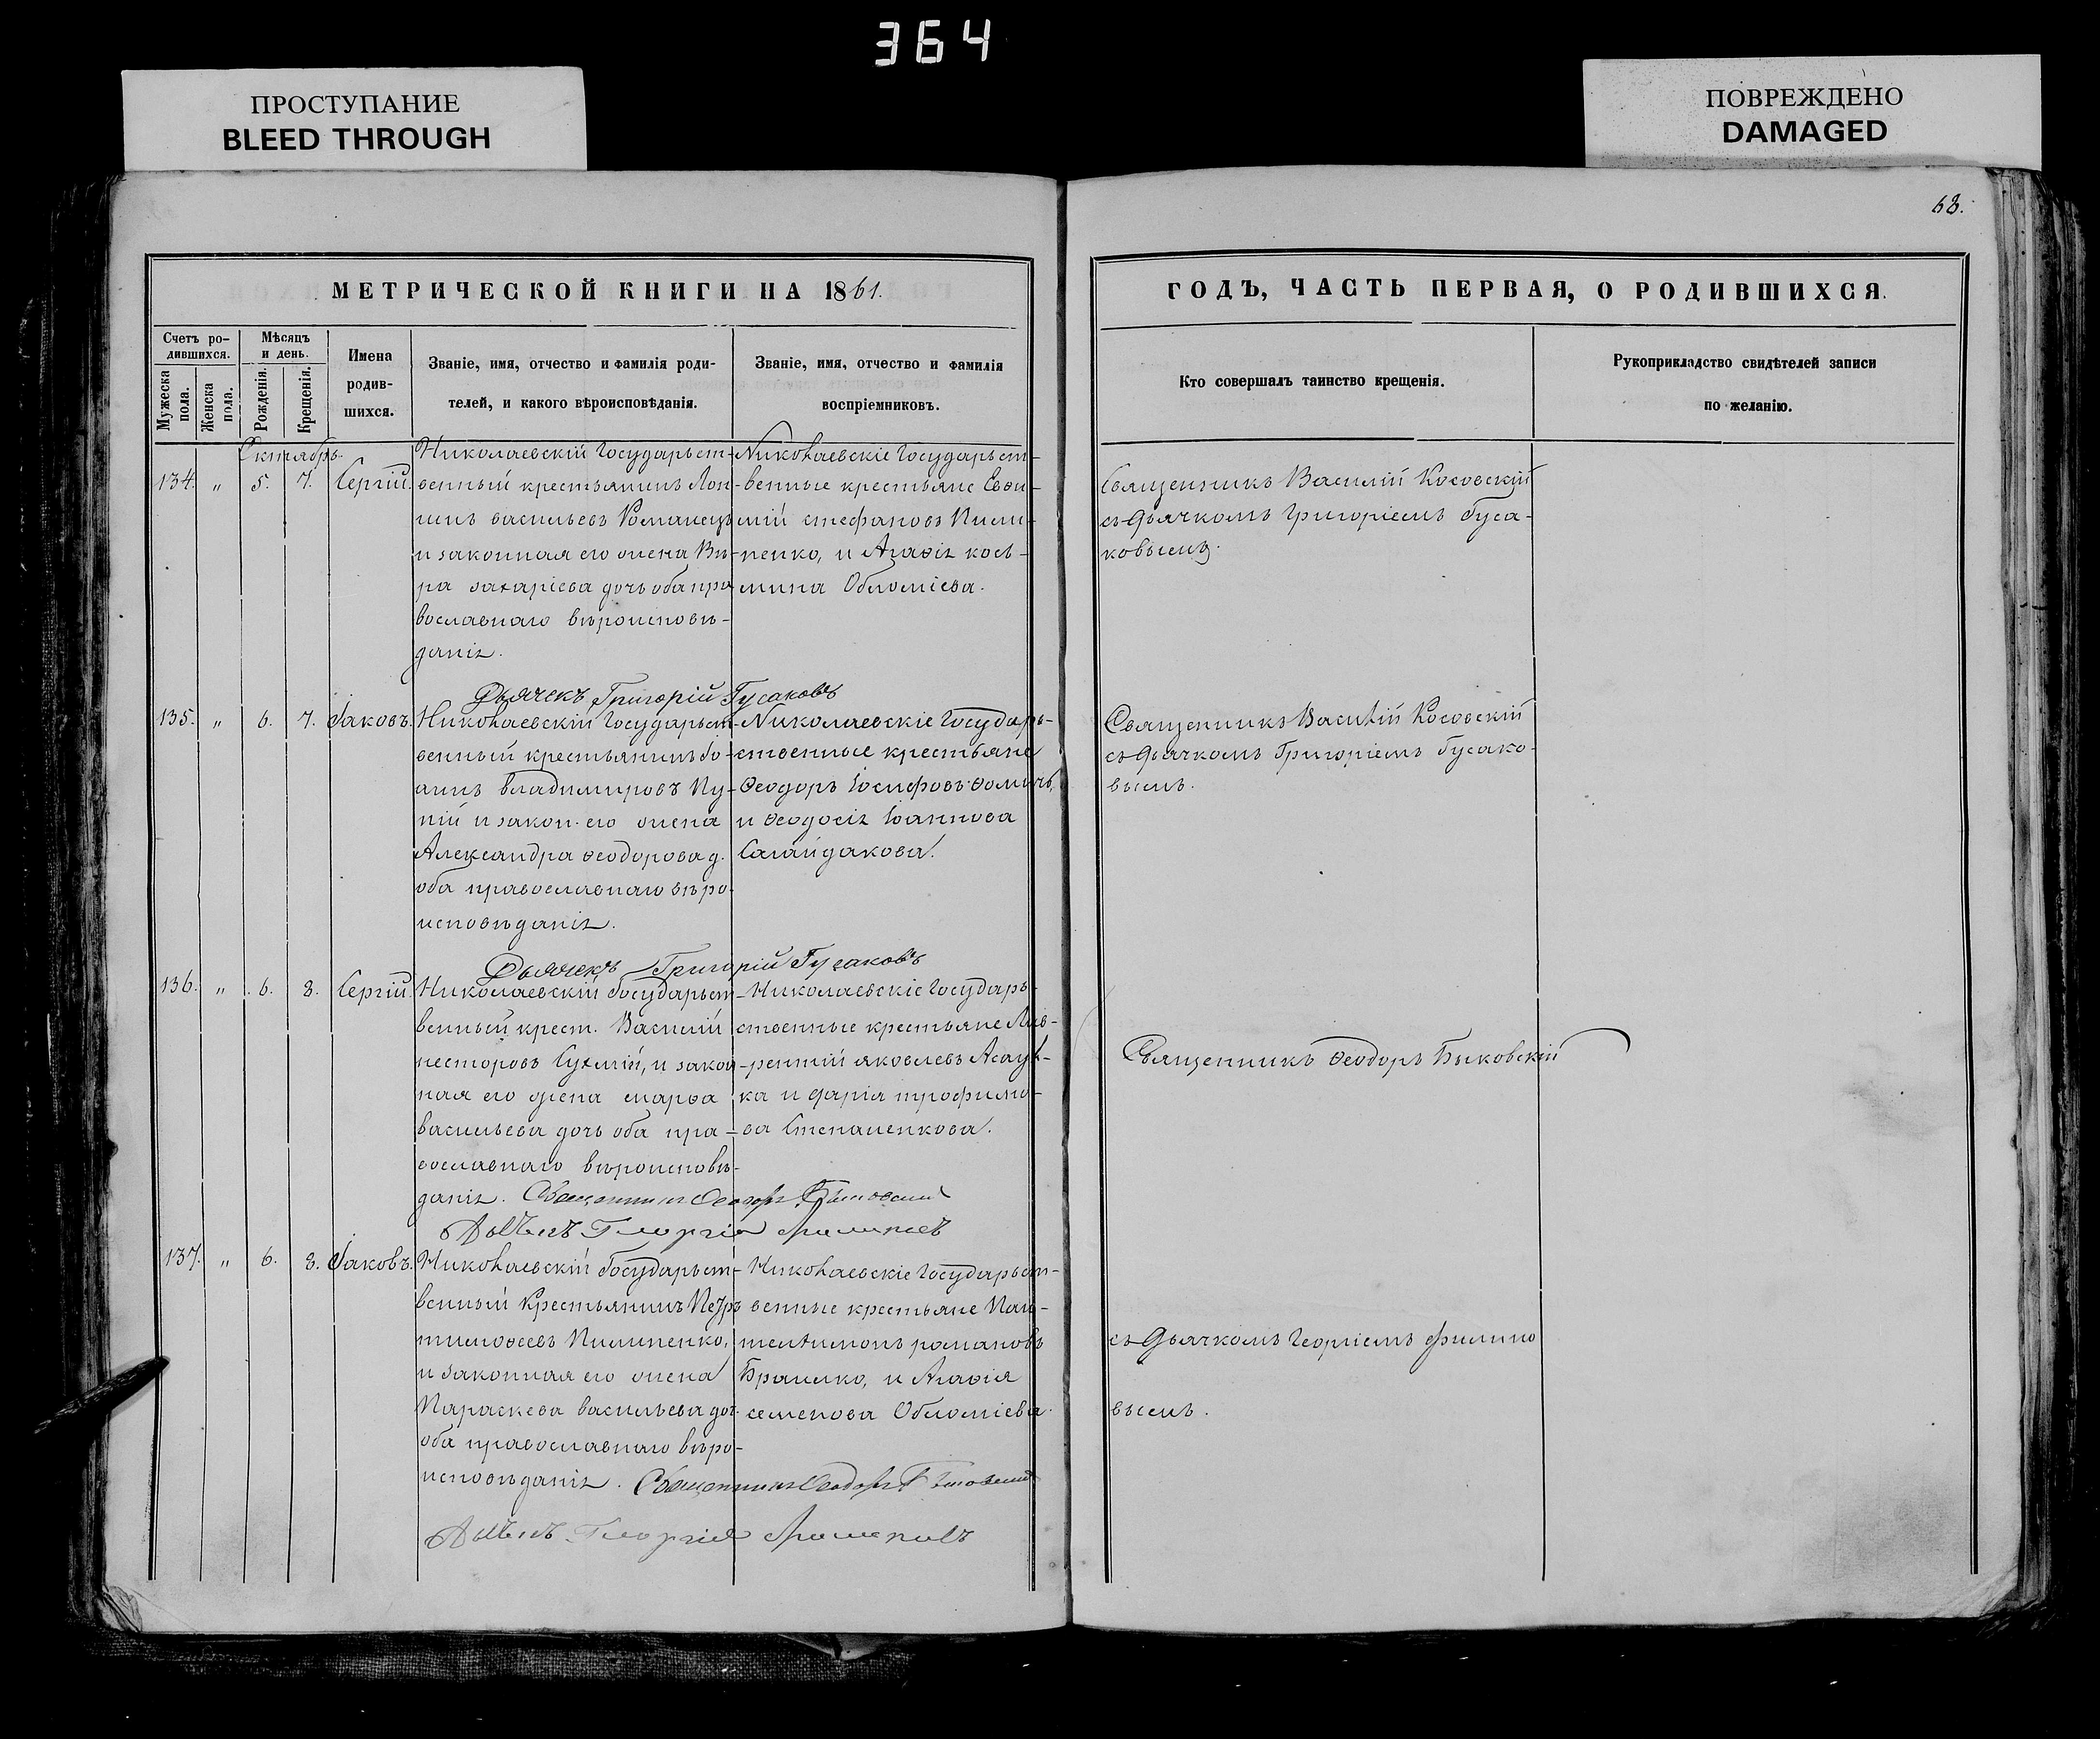 364
ПРОСТУПАНИЕ
BLEED THROUGH
ПОВРЕЖДЕНО
DAMAGED
68.
МЕТРИЧЕСКОЙ КНИГИ НА 1861.
ГОДЪ, ЧАСТЬ ПЕРВАЯ, О РОДИВШИХСЯ.
Счетъ ро-
дившихся.
Мужеска пола.
Женска пола.
Мѣсяцъ
и день.
Рожденія.
Крещенія.
Имена
родив-
шихся.
Званіе, имя, отчество и фамилія роди-
телей, и какого вѣроисповѣданія.
Званіе, имя, отчество и фамилія
воспріемниковъ.
Кто совершалъ таинство крещенія.
Рукоприкладство свидѣтелей записи
по желанію.
Октябрь.
134. " 5. 7. Сергій.
Николаевскій Государьст-
венный крестьянинъ Лон-
гинъ васильевъ Романецъ
и законная его жена Вѣ-
ра захаріева дочь оба пра
вославнаго вѣроисповѣ-
данія.
Николаевскіе Государьст-
венные крестьяне Евѳи-
мій стефановъ Пили-
пенко, и Агаѳія косъ-
мина Обломіева.
Священникъ Василій Косовскій
съ дьячкомъ Григоріемъ Гуса-
ковымъ.
Дьячекъ Григорій Гусаковъ
135. " 6. 7. Іаковъ.
Николаевскій Государьст-
венный крестьянинъ Іо-
аннъ владимировъ Пу-
ній и закон. его жена
Александра ѳеодорова д.
оба православнаго вѣро-
исповѣданія.
Николаевскіе Государь-
ственные крестьяне
Ѳеодоръ Іосифовъ
и Ѳеодосія Іоаннова
Сагайдакова.
Священникъ Василій Косовскій
съ дьячкомъ Григоріемъ Гусако-
вымъ.
Дьячекъ Григорій Гусаковъ
136. " 6. 8. Сергій.
Николаевскій Государьст-
венный крест. Василій
несторовъ и закон-
ная его жена марѳа
васильева дочь оба пра-
вославнаго вѣроисповѣ-
данія.
Николаевскіе Государь-
ственные крестьяне Лав-
рентій яковлевъ
ка и дарія трофимо-
ва Степаненкова.
Священникъ Ѳеодоръ Быковскій
Священникъ Ѳеодоръ Быковскій
137. " 6. 8. Іаковъ.
Николаевскій Государьст-
венный Крестьянинъ Петръ
тимоѳеевъ Пилипенко,
и законная его жена
Параскева васильева доч.
оба православнаго вѣро-
исповѣданія.
Николаевскіе Государьст-
венные крестьяне Пан-
телеимонъ романовъ
и Агаѳія
семенова Обломіева.
съ дьячкомъ Георгіемъ филипо
вымъ.
Священникъ Ѳеодоръ Быковскій